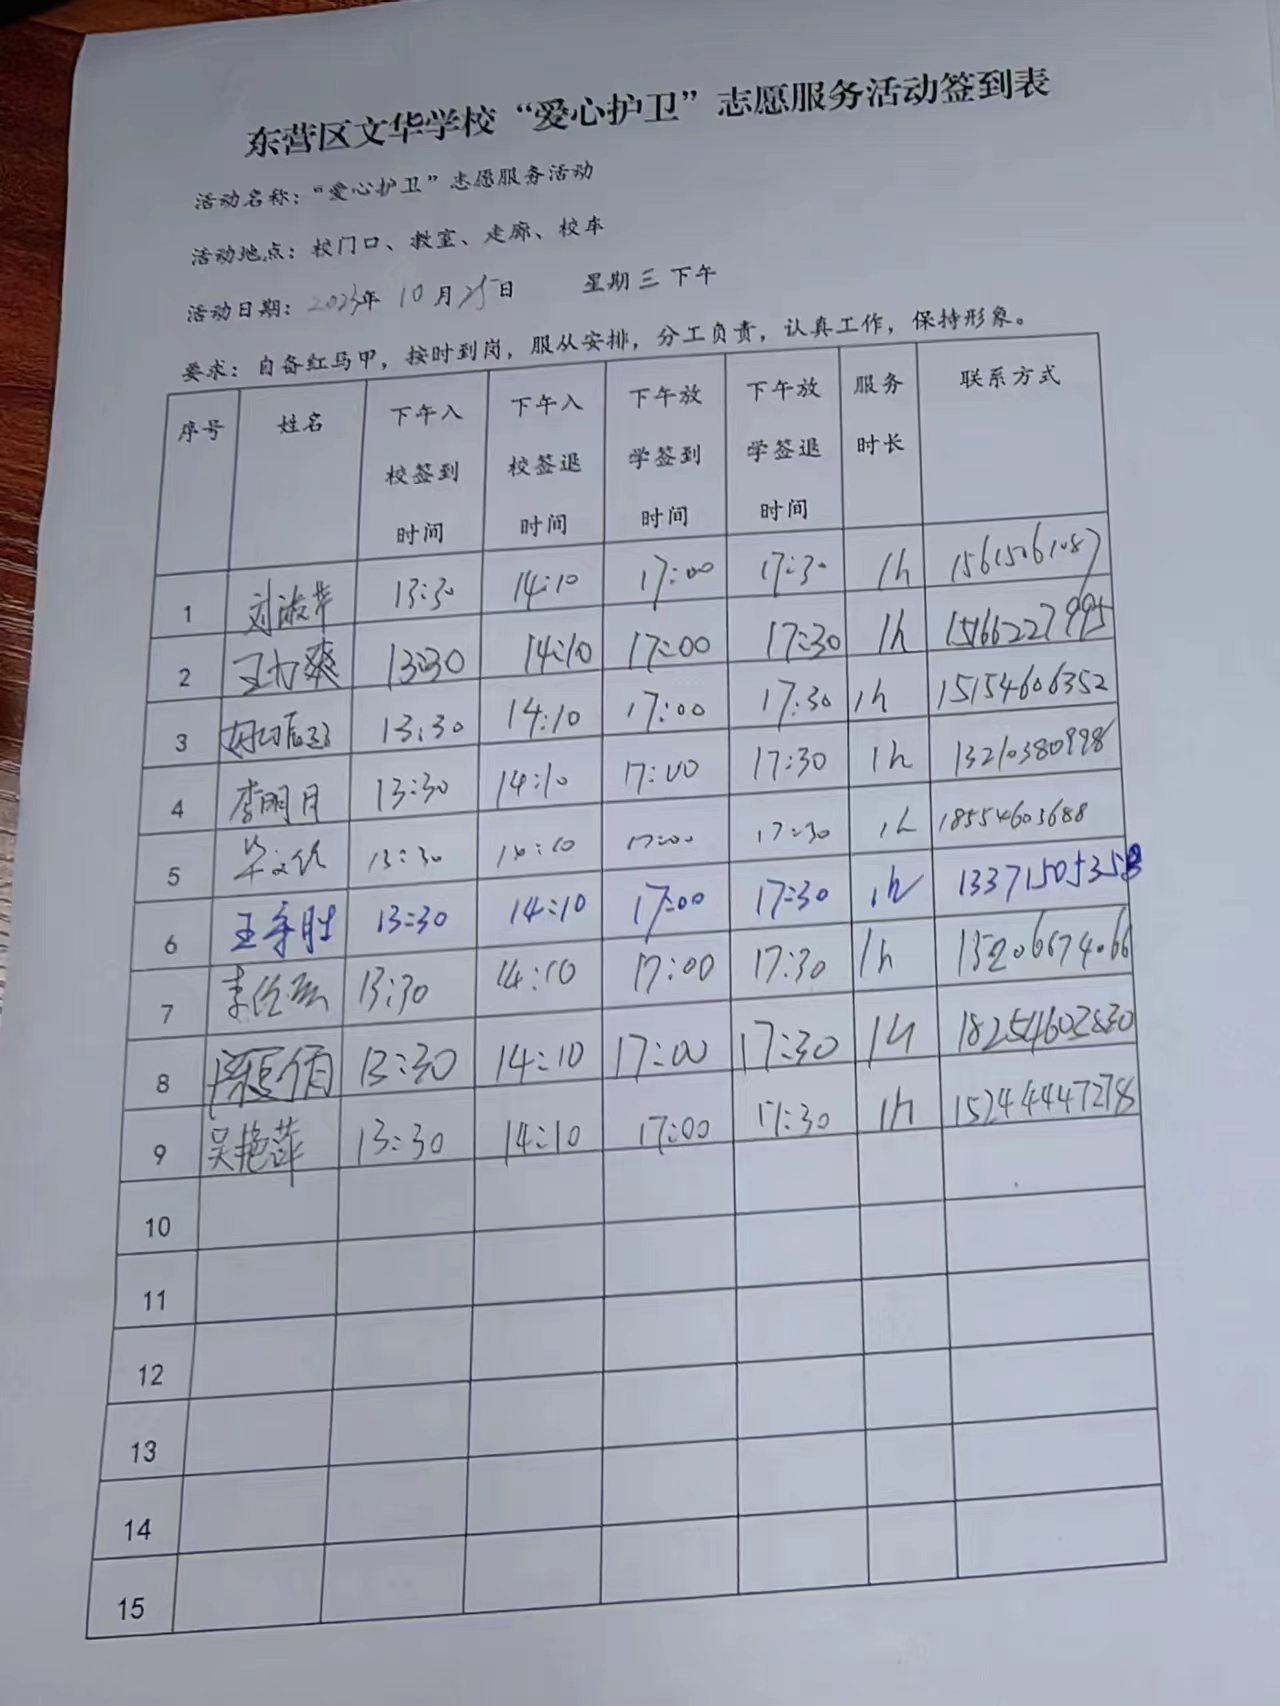 东营区文华学校“爱心护卫”志愿服务活动签到表
活动名称：“爱心护卫”志愿服务活动
活动地点：校门口、教室、走廊、校车
活动日期：2023年 10月25日 星期三下午
要求：自备红马甲，按时到岗，服从安排，分工负责，认真工作，保持形象。
序号 姓名 下午入校签到时间 下午入校签退时间 下午放学签到时间 下午放学签退时间 服务时长 联系方式
1 刘淑华 13:30 14:10 17:00 17:30 1h 15615061087
2 13:30 14:10 17:00 17:30 1h 15166227995
3 13:30 14:10 17:00 17:30 1h 15154606352
4 李明月 13:30 14:10 17:00 17:30 1h 13210380998
5 13:30 14:10 17:00 17:30 1h 18554603688
6 13:30 14:10 17:00 17:30 1h
7 13:30 14:10 17:00 17:30 1h 15206674066
8 13:30 14:10 17:00 17:30 1h 18254602830
9 吴艳萍 13:30 14:10 17:00 17:30 1h 15244447278
10
11
12
13
14
15